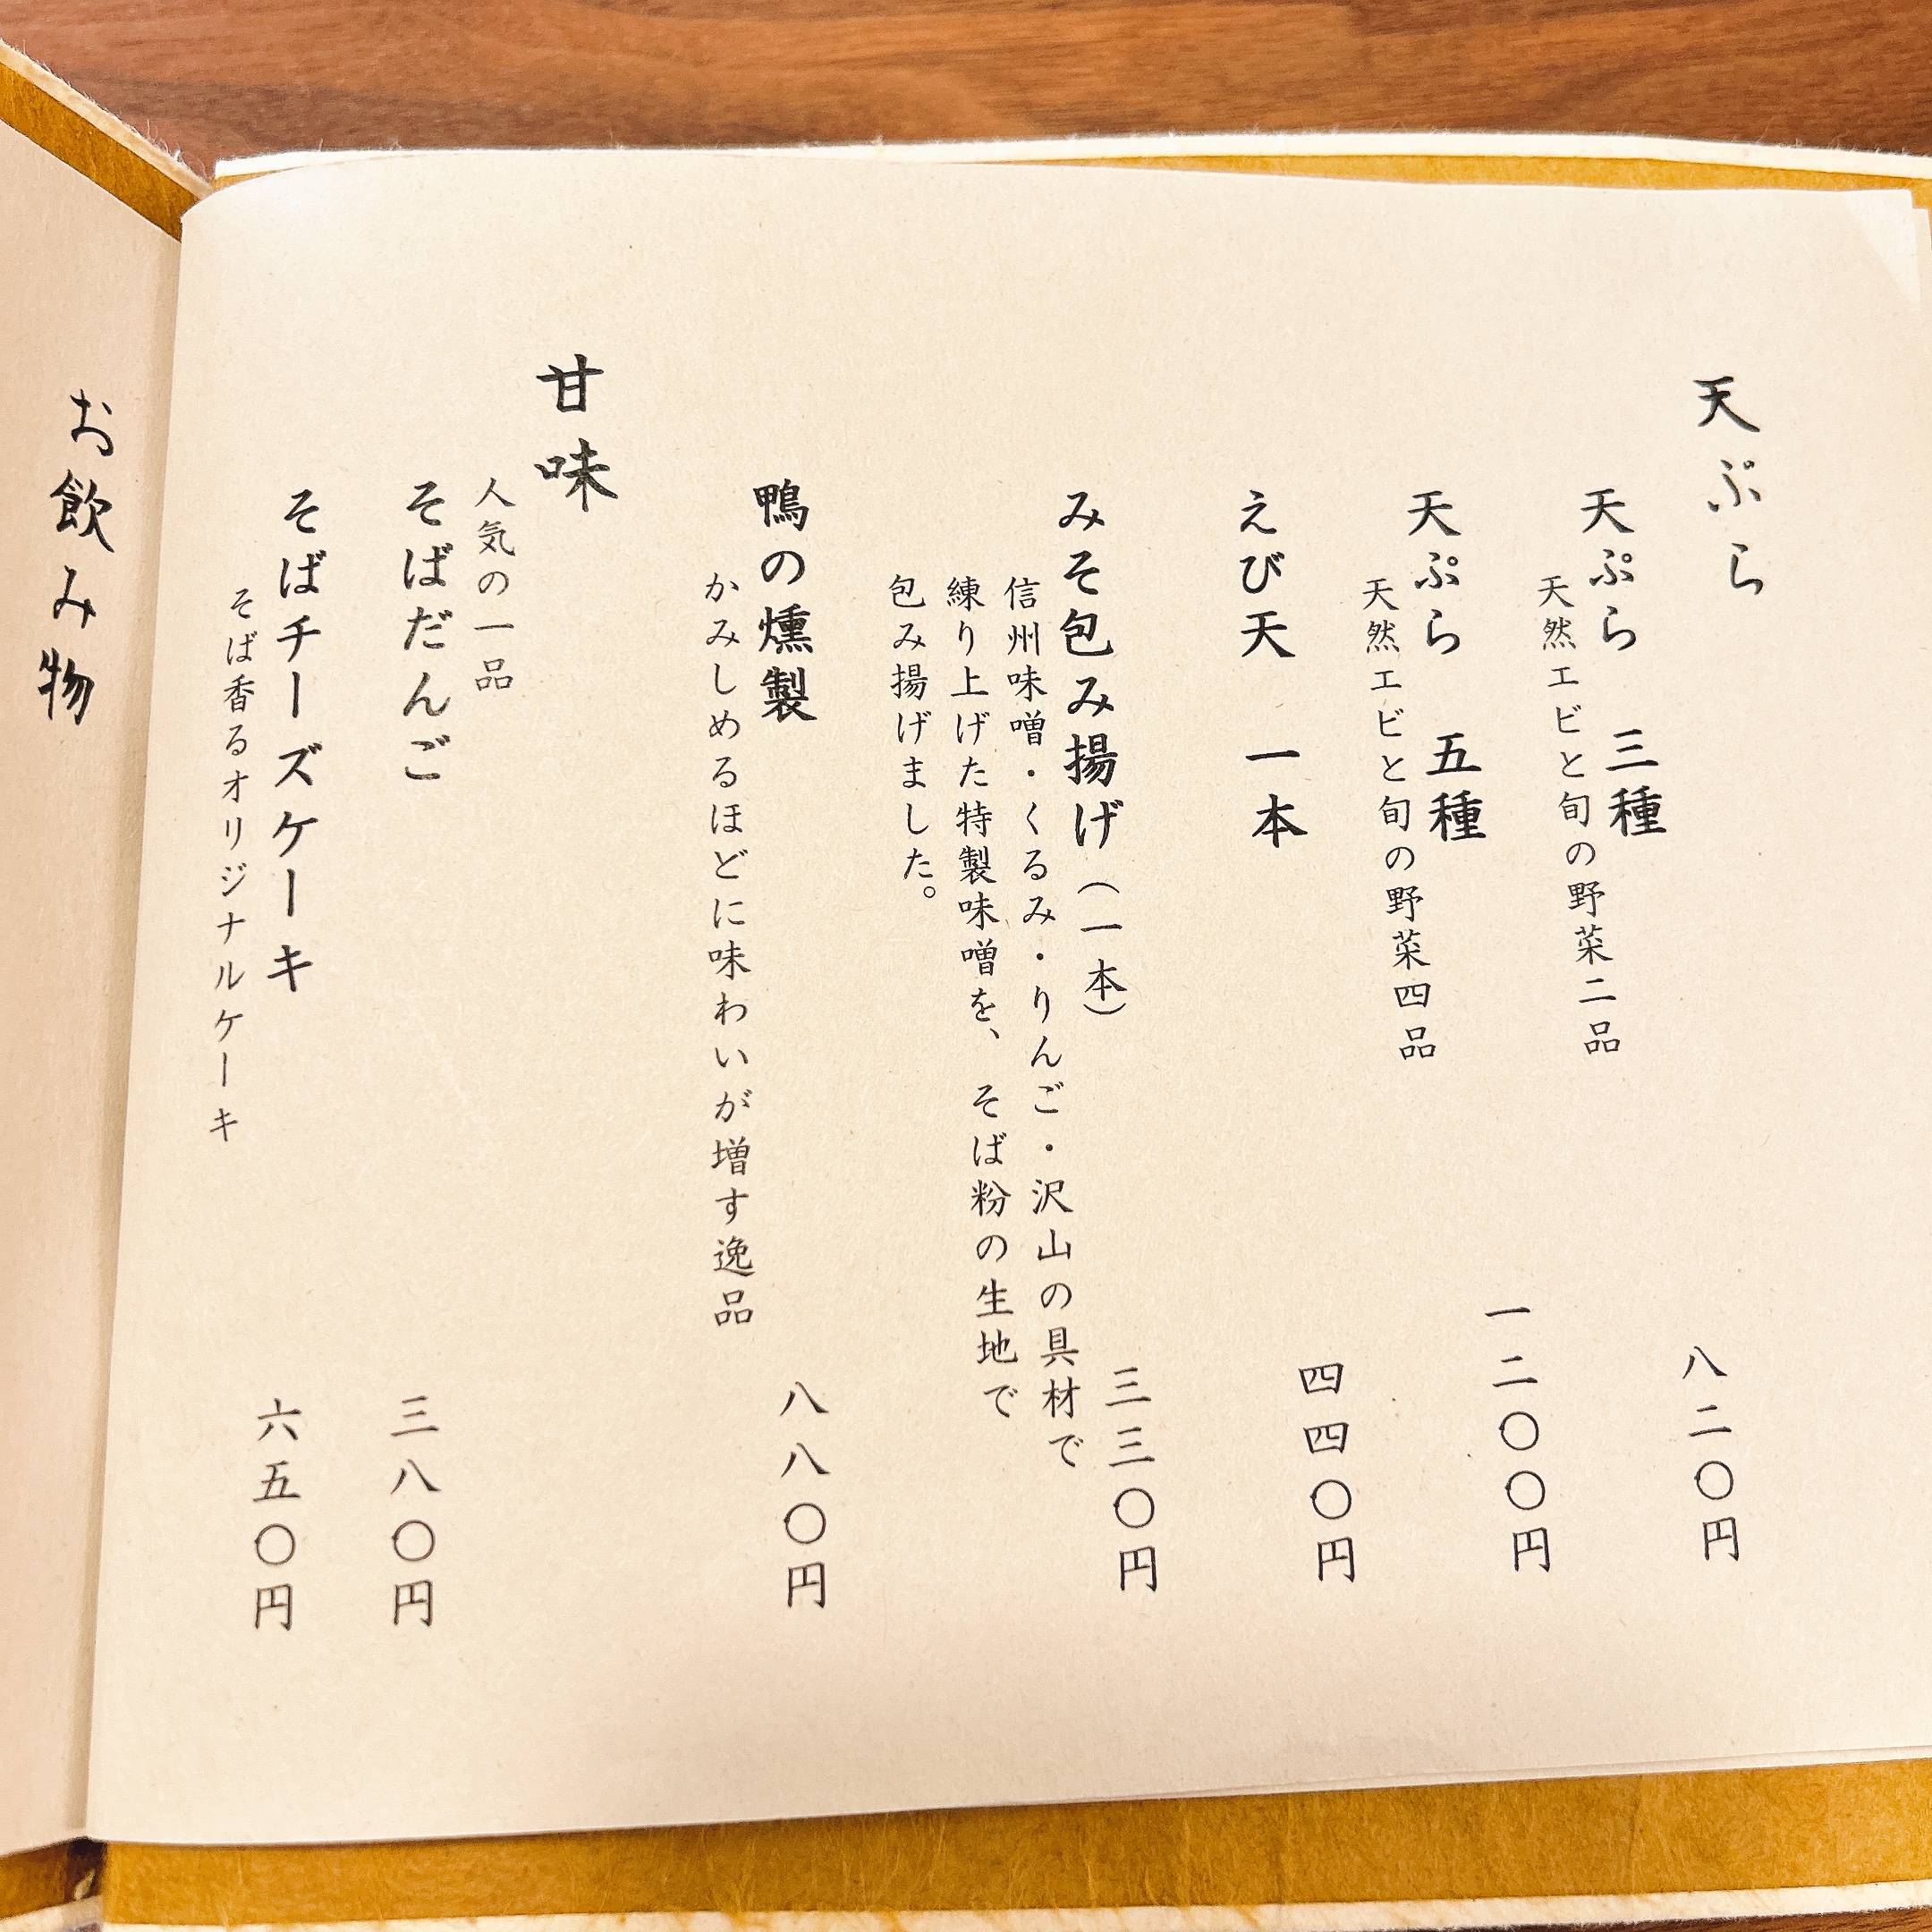 天ぷら
天ぷら 三種 八二〇円
天然エビと旬の野菜二品
天ぷら 五種 一二〇〇円
天然エビと旬の野菜四品
えび天 一本 四四〇円
みそ包み揚げ（一本） 三三〇円
信州味噌・くるみ・りんご・沢山の具材で
練り上げた特製味噌を、そば粉の生地で
包み揚げました。
鴨の燻製 八八〇円
かみしめるほどに味わいが増す逸品
甘味
人気の一品
そばだんご 三八〇円
そばチーズケーキ 六五〇円
そば香るオリジナルケーキ
お飲み物